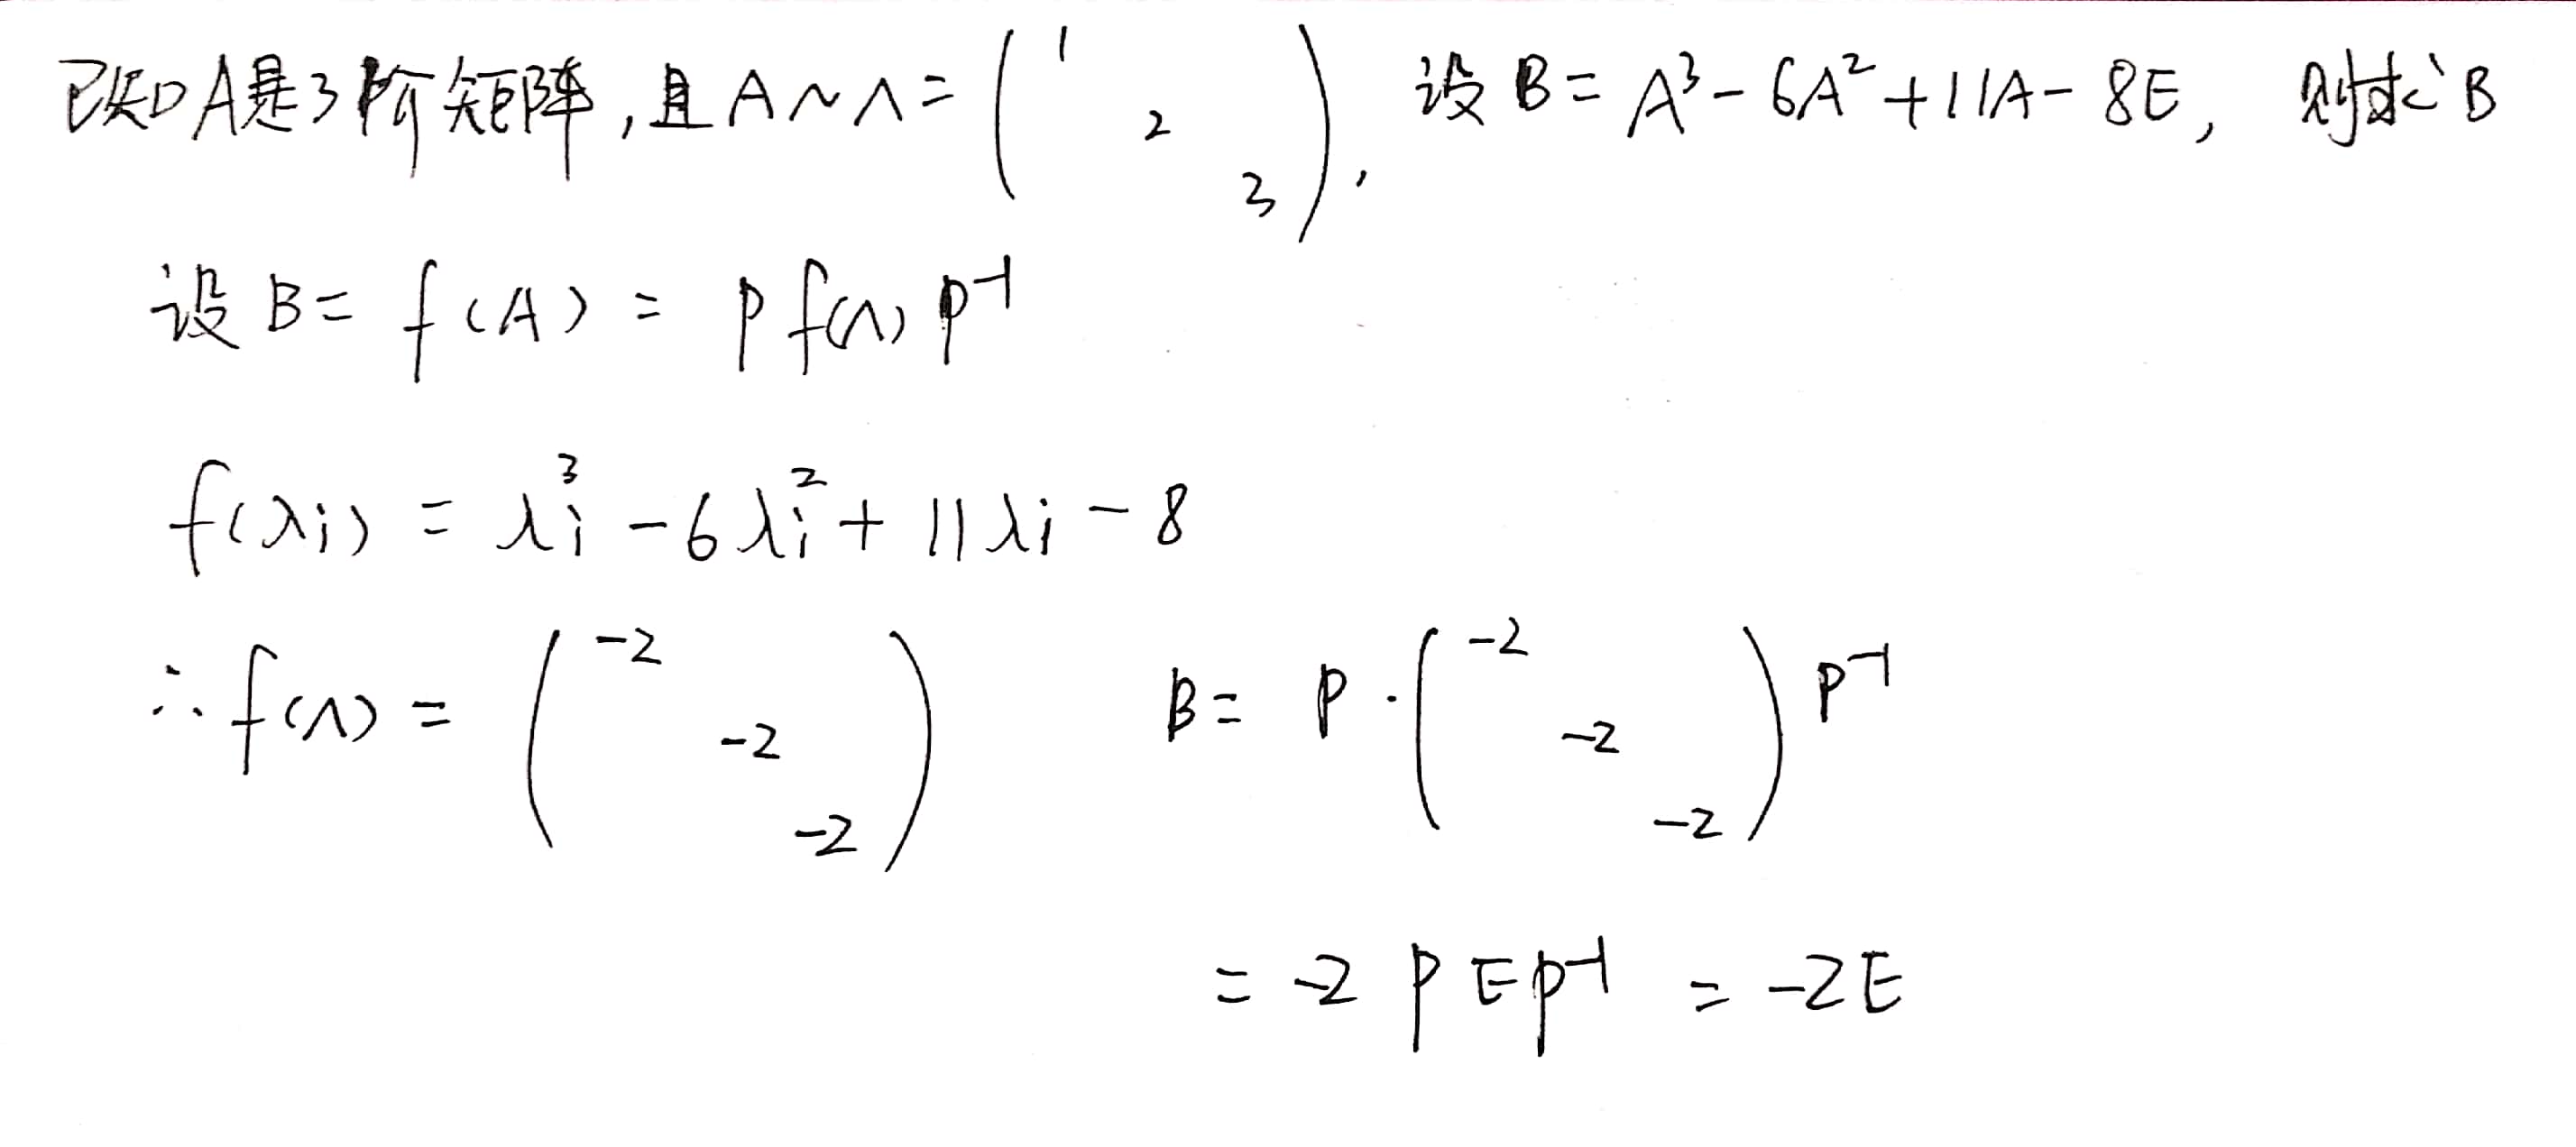 已知A是3阶矩阵,且A~Λ=(1 2 3),设B=A³-6A²+11A-8E,则求B
设B=f(A)=Pf(Λ)P⁻¹
f(λi)=λi³-6λi²+11λi-8
∴f(Λ)=(-2 -2 -2) B=P·(-2 -2 -2)P⁻¹
=-2PEP⁻¹=-2E